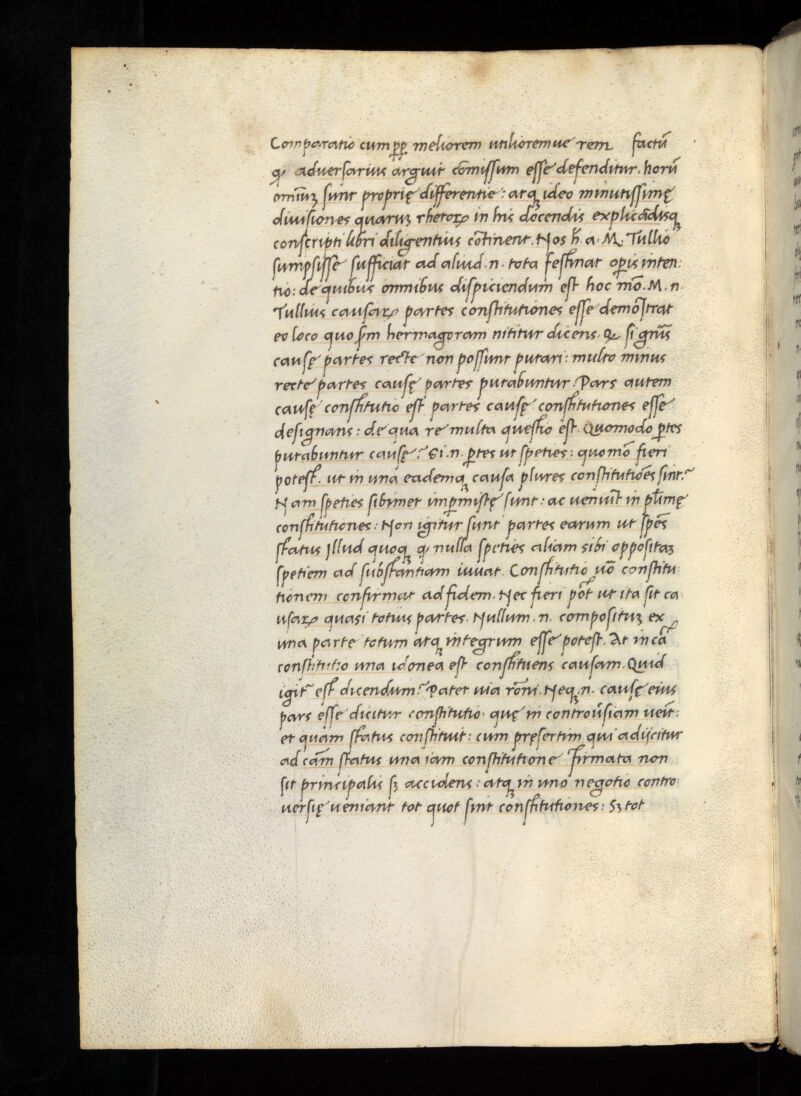 Comparatio cum ꝑꝑ meliorem utilioremue rem factū
q, aduersarius arguit cōmissum esse defenditur. horū
omniuꝫ sunt proprię differentie: atqꝫ ideo minutissimę
diuisiones quaruꝫ rhetoꝝ in his docendis explicādisqꝫ
conscripti libri diligentius cōtinent. Nos h̄. a. M. Tullio
sumpsisse sufficiat ad aliud .n. tota festinat opis inten:
tio: de quibus omnibus dispiciendum est hoc mō. M. n.
Tullius causaꝝ partes constitutiones esse demōstrat
eo loco quo ſm hermagoram nititur dicens. Q, si gn̄is
causę partes recte non possunt putari: multo minus
recte partes causę partes putabuntur. Pars autem
causę constitutio est partes causę constitutiones esse
designans: de qua re multa questio est. Quomodo ꝑtes
putabuntur causę? Si .n. ꝑtes ut speties: quomō fieri
potest. ut in una eademqꝫ causa plures constitutiōes sint?
Nam speties sibimet inꝑmistę sunt: ac ueniūt in pl̄imę
constitutiones: Non igitur sunt partes earum ut spēs
status Illud quoqꝫ q, nulla speties aliam sibi oppositaꝫ
spetiem ad substantiam iuuat. Constitutio uō constitu
tionem confirmat ad fidem. Nec fieri pōt ut ita sit ca
usaꝝ quasi totius partes. Nullum .n. composituꝫ ex
una parte totum atqꝫ integrum esse potest. At in cā
constitutio una idonea est constituens causam. Quid
igit̄ est dicendum? Patet uia rōni. Neqꝫ .n. causę eius
pars esse dicitur constitutio. quę in controūsiam ueīt:
et quam status constituit: cum pręsertim qui adijcitur
ad cām status una iam constitutione firmata non
sit principalis sꝫ accidens: atqꝫ in uno negotio contro
uersię ueniant tot quot sint constitutiones: Sꝫ tot